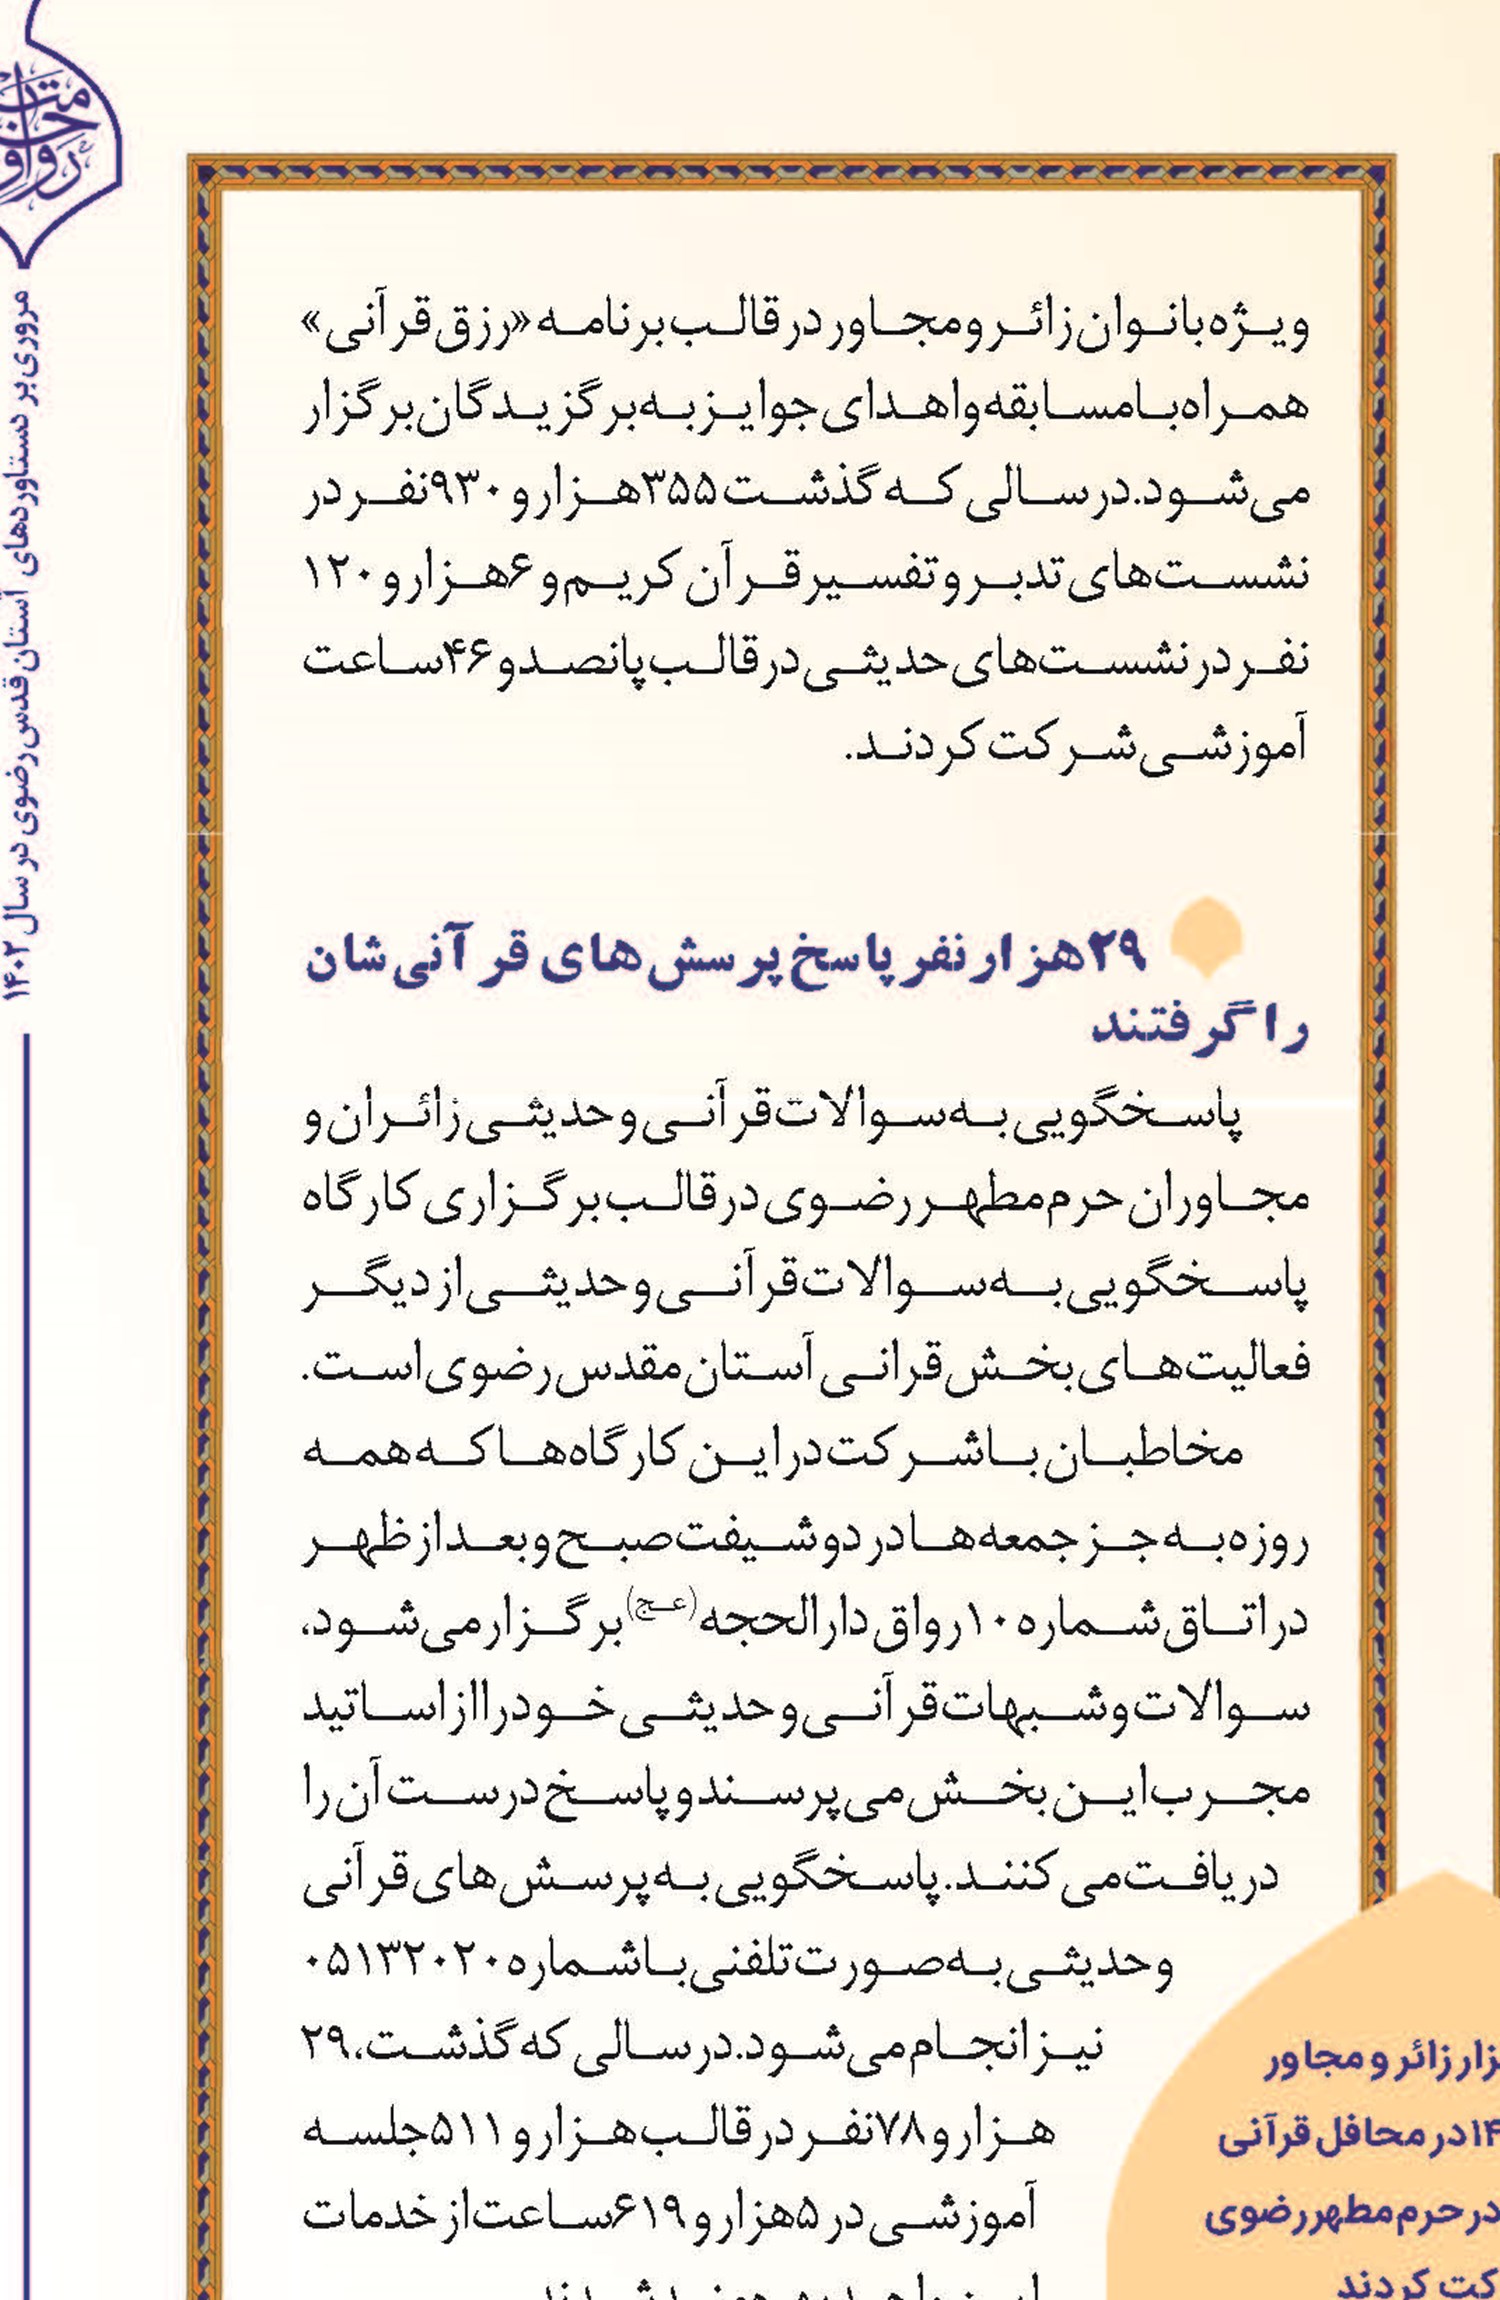 ویژه بانوان زائر و مجاور در قالب برنامه «رزق قرآنی»
همراه با مسابقه و اهدای جوایز به برگزیدگان برگزار
می‌شود. در سالی که گذشت ۳۵۵هزار و ۹۳۰نفر در
نشست‌های تدبر و تفسیر قرآن کریم و ۶هزار و ۱۲۰
نفر در نشست‌های حدیثی در قالب پانصد و ۴۶ساعت
آموزشی شرکت کردند.
۲۹هزار نفر پاسخ پرسش‌های قرآنی‌شان
را گرفتند
پاسخگویی به سوالات قرآنی و حدیثی زائران و
مجاوران حرم مطهر رضوی در قالب برگزاری کارگاه
پاسخگویی به سوالات قرآنی و حدیثی از دیگر
فعالیت‌های بخش قرانی آستان مقدس رضوی است.
مخاطبان با شرکت در این کارگاه‌ها که همه
روزه به جز جمعه‌ها در دو شیفت صبح و بعد از ظهر
در اتاق شماره ۱۰ رواق دارالحجه(عج) برگزار می‌شود،
سوالات و شبهات قرآنی و حدیثی خود را از اساتید
مجرب این بخش می‌پرسند و پاسخ درست آن را
دریافت می‌کنند. پاسخگویی به پرسش‌های قرآنی
و حدیثی به صورت تلفنی با شماره ۰۵۱۳۲۰۲۰
نیز انجام می‌شود. در سالی که گذشت، ۲۹
هزار و ۷۸نفر در قالب هزار و ۵۱۱جلسه
آموزشی در ۵هزار و ۶۱۹ساعت از خدمات
زائر و مجاور
۱۴ در محافل قرآنی
در حرم مطهر رضوی
کردند
مروری بر دستاوردهای آستان قدس رضوی در سال ۱۴۰۲